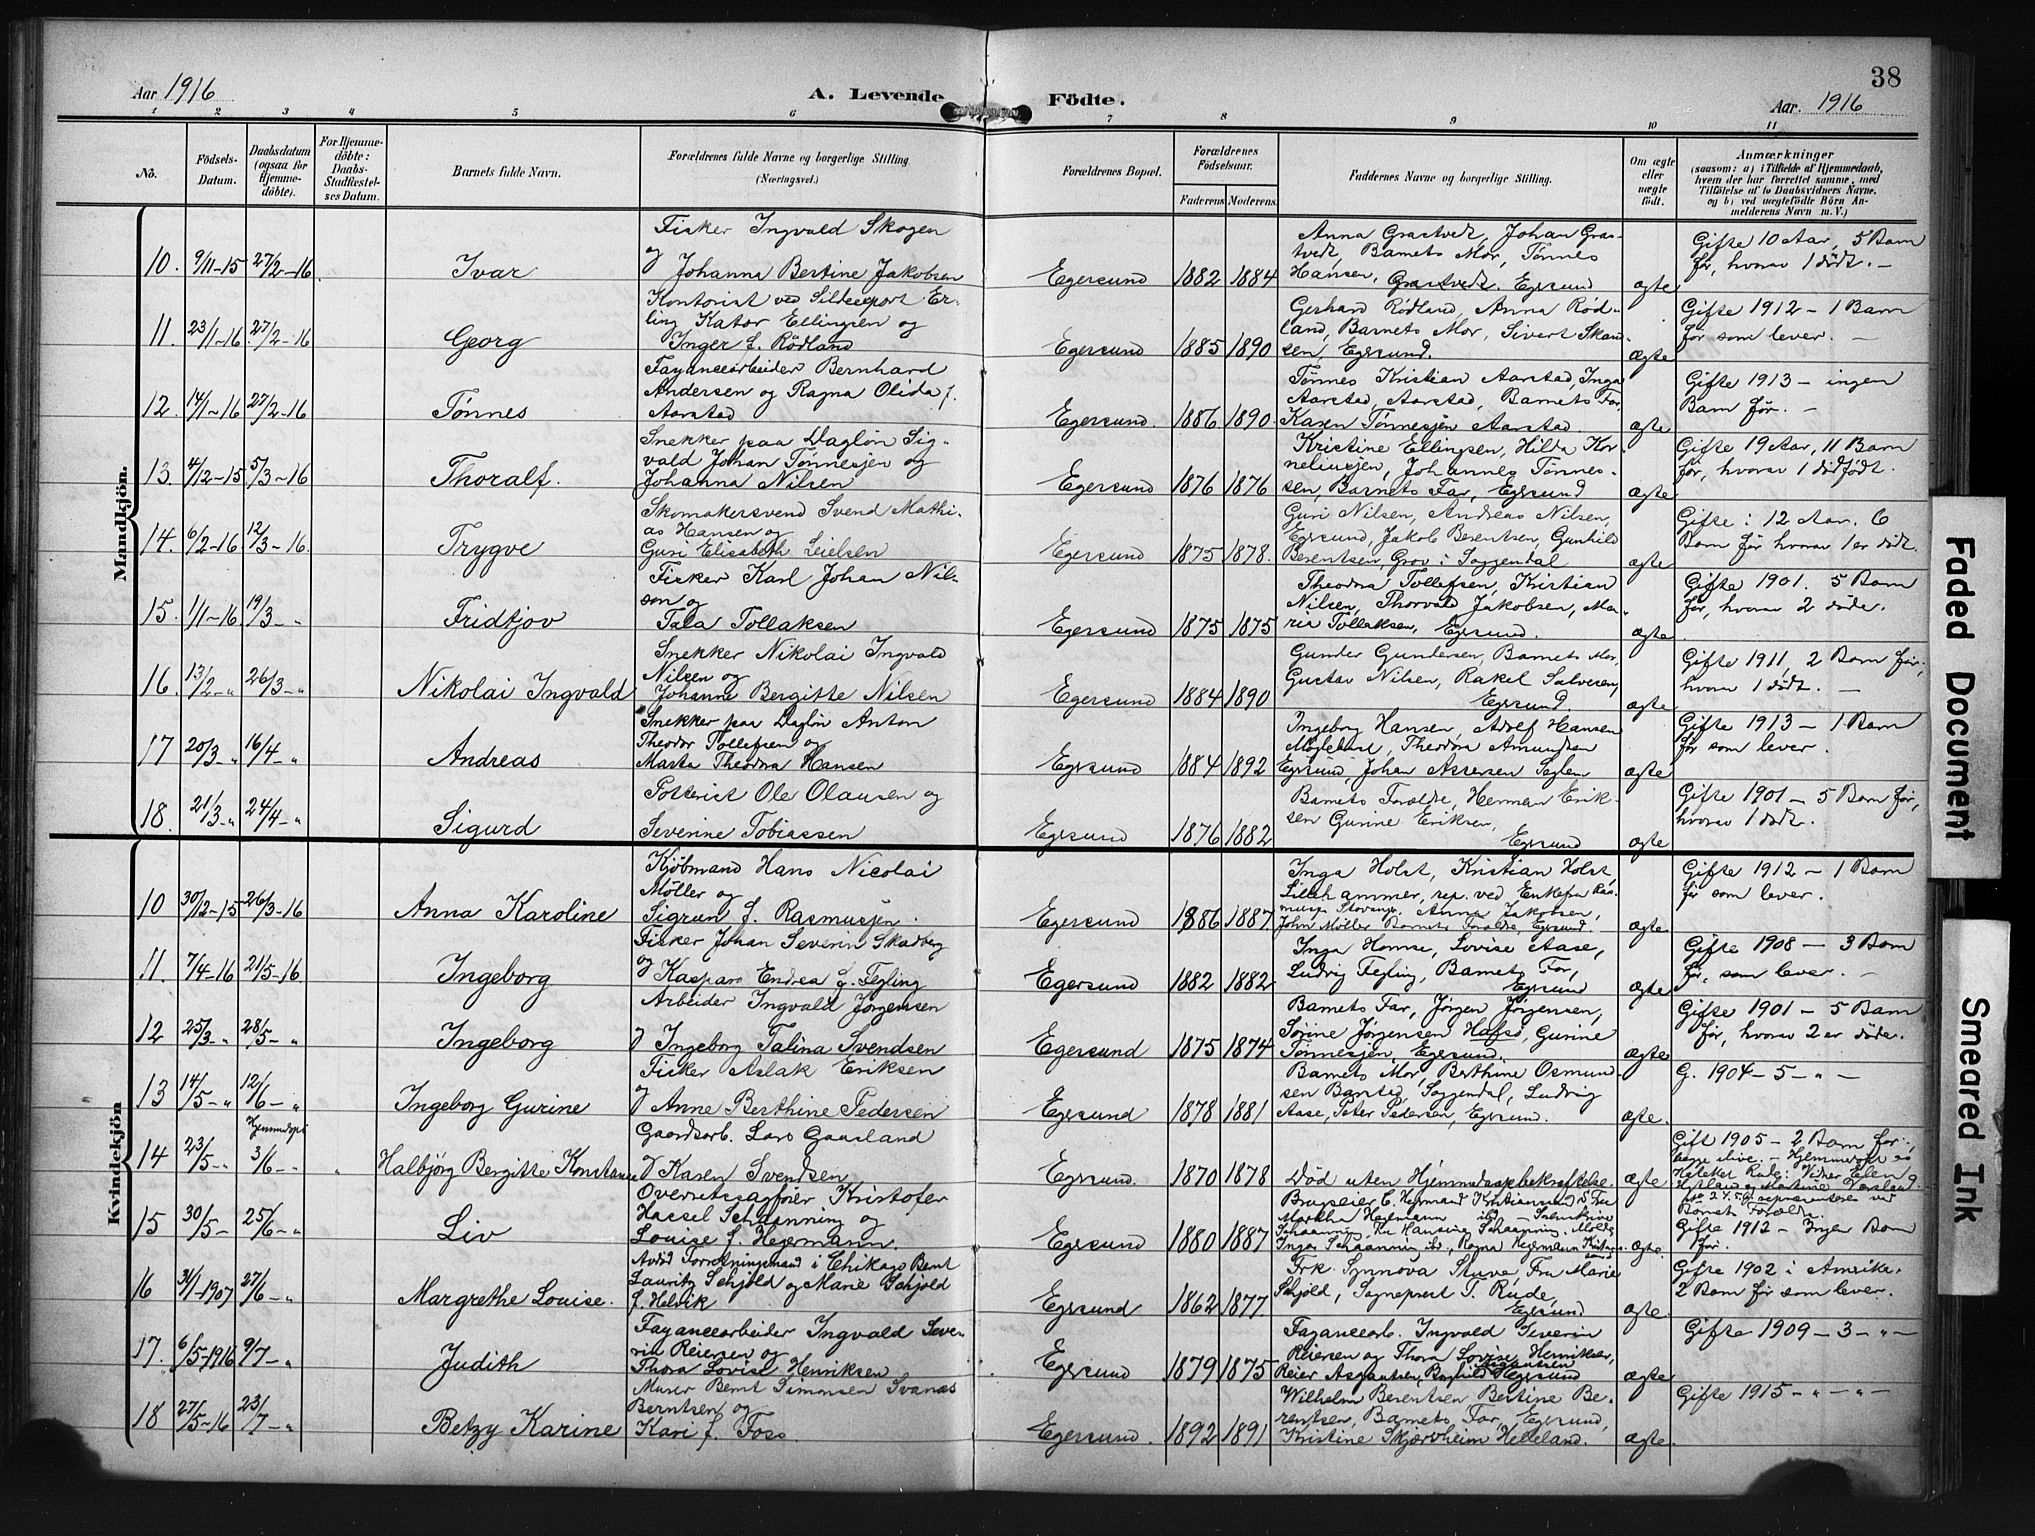 Aar 1916
A. Levende
Födte.
38
Aar. 1916
1 2 3 4 5 6 7 8 9 10 11
No.
Födsels-Datum.
Daabsdatum (ogsaa for Hjemme-döbte).
For Hjemme-döbte: Daabs-Stadfæstel-ses Datum.
Barnets fulde Navn.
Forældrenes fulde Navne og borgerlige Stilling. (Næringsvei.)
Forældrenes Bopæl.
Forældrenes Födselsaar.
Faderens Moderens
Faddernes Navne og borgerlige Stilling.
Om ægte eller uægte födt.
Anmærkninger
(saasom: a) i Tilfælde af Hjemmedaab, hvem der har forrettet samme, med Tilföielse af to Daabsvidners Navne, og b) ved uægtefödte Börn An-melderens Navn m. V.)
Mandkjön.
10. 9/11-15 27/2-16 Ivar
Fisker Ingvald Skogen
og Johanna Bertine Jakobsen
Egersund 1882 1884
Anna Grastvedt, Johan Gras-
tvedt, Barnets Mor, Tønnes
Hansen, Grastvedt. Egersund
ægte
Gifte 10 Aar, 5 Barn
før, hvorav 1 dødt. -
11. 23/1-16. 27/2-16 Georg
Kontorist ved Sildeexport Er-
ling Kator Ellingsen og
Inger f. Rødland
Egersund 1885 1890
Gerhard Rødland, Anna Rød-
land, Barnets Mor, Sivert Skan-
sen, Egersund.
ægte
Gifte 1912 - 1 Barn
før som lever. -
12. 14/1-16 27/2-16 Tønnes
Fayancearbeider Bernhard
Andersen og Ragna Olida f.
Aarstad
Egersund. 1886 1890
Tønnes Kristian Aarstad, Inga
Aarstad, Aarstad, Barnets Far,
Karen Tønnesjen Aarstad
ægte
Gifte 1913 - ingen
Barn før. -
13. 4/12-15 5/3-16 Thoralf.
Snekker paa Dagløn Sig-
vald Johan Tønnesjen og
Johanna Nilsen
Egersund 1876 1876
Kristine Ellingsen, Hilda Kor-
neliusjen, Johannes Tønnes-
sen, Barnets Far, Egersund
ægte
Gifte 19 Aar, 11 Barn
før, hvorav 1 dødfødt.
14. 6/2-16 12/3-16. Trygve
Skomakersvend Svend Mathi-
as Hansen og
Guri Elisabeth Leielsen
Egersund 1875 1878.
Guri Nilsen, Andreas Nilsen,
Egersund, Jakob Berentsen, Gunhild
Berentsen, Grov i Soggendal
ægte
Gifte i 12 Aar. 6
Barn før hvorav 1 er dødt.
15. 1/1-16. 19/3 - " Fridtjov
Fisker Karl Johan Nil-
son og
Tala Tollaksen
Egersund 1875 1875
Theodora Tollefsen, Kristian
Nilsen, Thorvald Jakobsen, Ma-
ria Tollaksen, Egersund.
ægte
Gifte 1901. 5 Barn
før, hvorav 2 døde.
16. 13/2-" 26/3-" Nikolai Ingvald
Snekker Nikolai Ingvald
Nilsen og
Johanne Bergitte Nilsen
Egersund 1884 1890
Gunder Gundersen, Barnets Mor,
Gustav Nilsen, Rakel Salvesen,
Egersund.
ægte
Gifte 1911, 2 Barn før,
hvorav 1 dødt. -
17 20/3 " 16/4-" Andreas
Snekker paa Dagløn Anton
Theodor Tollefsen og
Marta Theodora Hansen
Egersund 1884 1892
Ingeborg Hansen, Adolf Hansen
Møglebust, Theodora Amundsen
Egersund, Johan Assersen Seglem
ægte
Gifte 1913 - 1 Barn
før som lever.
18. 21/3-" 24/4-" Sigurd
Potterist Ole Olausen og
Severine Tobiassen
Egersund 1876 1882
Barnets Foræld​re, Herman Erik-
sen Gurine Eriksen,
Egersund
ægte
Gifte 1901 - 5 Barn før,
hvorav 1 dødt.
Kvindekjön
10 30/12-15 26/3-16 Anna Karoline
Kjøbmand Hans Nicolai
Møller og
Sigrun f. Rasmusjen.
Egersund 1886 1887
Inga Holst, Kristian Holst,
Lillehammer, rep. ved Enkefru Ras-
musjen Stavanger, Anna Jakobsen,
John Møller Barnets Forældre, Egersund.
ægte
Gifte 1912 - 1 Barn
før som lever.
11. 7/4-16 21/5-16 Ingeborg
Fisker Johan Severin Skadberg
og Kaspara Endrea f. Tegling
Egersund 1882 1882
Inga Homse, Lovise Aase,
Ludvig Tegling, Barnets Far,
Egersund
ægte
Gifte 1908 - 3 Barn
før, som lever. -
12 25/3-" 28/5-" Ingeborg
Arbeider Ingvald Jørgensen
og Ingeborg Talina Svendsen
Egersund 1875 1874
Barnets Far, Jørgen Jørgensen,
Sørine Jørgensen Hafsø, Gurine
Tønnesjen, Egersund.
ægte
Gifte 1901 - 5 Barn
før, hvorav 2 er døde.
13 14/5-" 12/6-" Ingeborg Gurine
Fisker Aslak Eriksen
og Anne Berthine Pedersen
Egersund 1878 1881
Barnets Mor, Berthine Osmund-
sen Barstad, Soggendal, Ludvig
Aase, Peter Pedersen, Egersund.
ægte.
G. 1904 - 5 - " -
14 23/5-" Hjemmedøpt 3/6-" " Halbjørg Bergitte Konstance
Gaardsarb. Lars Gaasland
og Karen Svendsen
Egersund. 1870 1878
Død uten Hjemmedaapsbekræftelse.
ægte
Gift 1905 - 2 Barn før
begge ilive. - Hjemmedøpt av
15 30/5- 25/6-" Liv
Overretssagfører Kristofer
Hassel Schaanning og
Louise f. Hegermann.
Egersund 1880 1887
Brugseier C. Hegermand Kristiansund S. Fru
Martha Hegermann ibd -
Schaanning, Fru Hansine Schaanning, Molde
Inga Schaanning ibd, Ragna Hegermann Kristian-
sund
ægte.
Gifte 1912 - Ingen Barn
før.
16 31/1-1907 27/6-" Margrethe Louise.
Avdød Forretningsmand i Chikago Bernt
Lauritz Schjold og Marie Schjold
f. Helvik
Egersund 1862 1877
Frk. Synnøva Stuve, Fru Marie
Schjold, Sogneprest T. Rude,
Egersund
ægte.
Gifte 1902 i Amerika.
2 Barn før som lever.
17. 6/5-1916 9/7-" Judith
Fayancearbeider Ingvald Seve-
rin Reiersen og
Thora Lovise Henriksen
Egersund 1879 1875
Fayancearb. Ingvald Severin
Reiersen og Thora Lovise Henriksen,
Reier Asgautsen, Ragnhild Asgautsen Egersund
ægte
Gifte 1909 - 3 - " -
18 27/5-16 23/7-" Betzy Karine
Murer Bernt Simonsen Svanæs
Berntsen og
Kari f. Foss.
Egersund. 1892 1891
Wilhelm Berentsen Bertine Be-
rentsen, Barnets Far, Egersund,
Kristine Skjærvheim Helleland.
ægte.
Gifte 1915 - " - " -
Faded Document
Smeared Ink